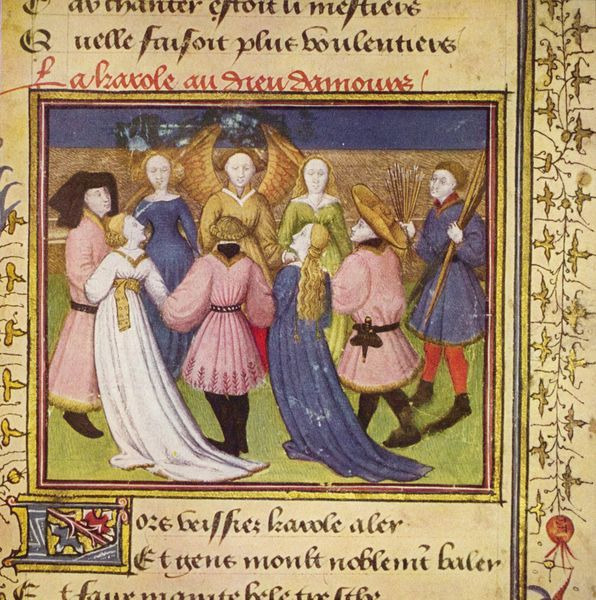 C av chanter estoit li mestiers
Q uelle faisoit plus voulentiers
La karole au dieu damours
Lors veissiez karole aler
Et gens moult noblemt baler
Et faire mainte bele tresche